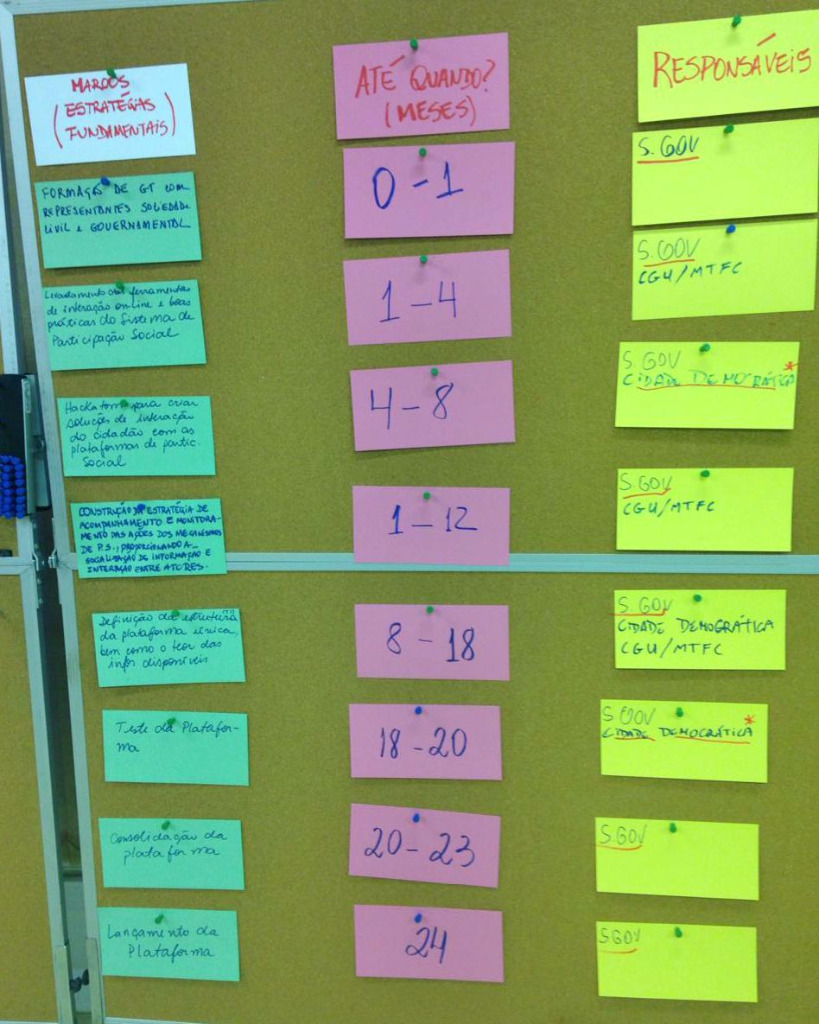 MARCOS
(ESTRATÉGIAS
FUNDAMENTAIS)
ATÉ QUANDO?
(MESES)
RESPONSÁVEIS
FORMAÇÃO DE GT COM
REPRESENTANTES SOCIEDADE
CIVIL E GOVERNAMENTAL
0 - 1
S. GOV
Levantamento das ferramentas
de interação on-line e boas
práticas do Sistema de
Participação Social
1 - 4
S. GOV
CGU/MTFC
Hackatom para criar
soluções de interação
do cidadão com as
plataformas de partic.
Social
4 - 8
S. GOV
CIDADE DEMOCRÁTICA*
CONSTRUÇÃO DA ESTRATÉGIA DE
ACOMPANHAMENTO E MONITORA-
MENTO DAS AÇÕES DOS MECANISMOS
DE P.S., PROPORCIONANDO A
SOCIALIZAÇÃO DE INFORMAÇÃO E
INTERAÇÃO ENTRE ATORES.
1 - 12
S. GOV
CGU/MTFC
Definição da estrutura
da plataforma única,
bem como o teor das
infos disponíveis
8 - 18
S. GOV
CIDADE DEMOGRÁTICA
CGU/MTFC
Teste da Platafor-
ma
18 - 20
S GOV
CIDADE DEMOCRÁTICA*
Consolidação da
plataforma
20 - 23
SGOV
Lançamento da
Plataforma
24
SGOV